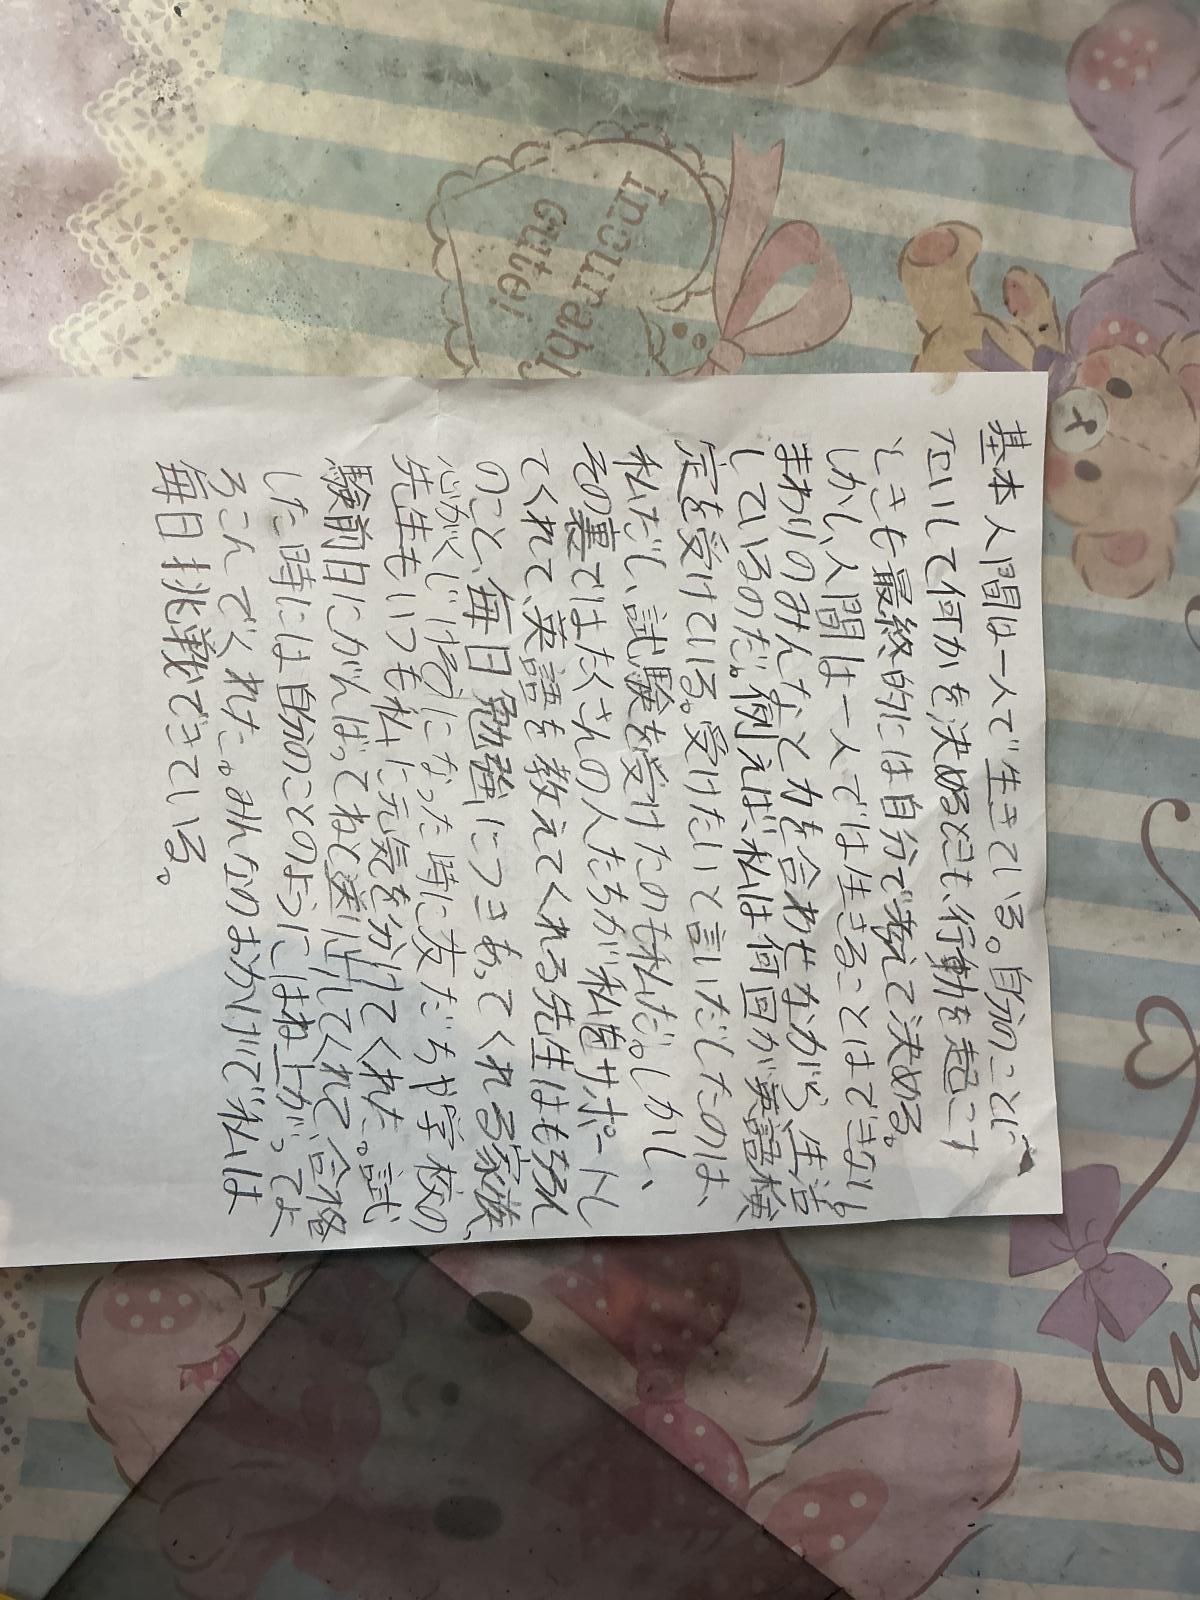 基本人間は一人で生きている。自分のことに
たいして何かを決めるときも、行動を起こす
ときも最終的には自分で考えて決める。
しかし、人間は一人では生きることはできない。
まわりのみんなと力を合わせながら、生活
しているのだ。例えば、私は何回か英語検
定を受けている。受けたいと言いだしたのは、
私だし、試験を受けたのも私だ。しかし、
その裏ではたくさんの人たちが私をサポートし
てくれて、英語を教えてくれる先生はもちろん
のこと、毎日勉強につきあってくれる家族、
心がくじけそうになった時に友だちや学校の
先生もいつも私に元気を分けてくれた。試
験前日にがんばってねと送り出してくれて、合格
した時には自分のことのようにはね上がってよ
ろこんでくれた。みんなのおかげで私は
毎日挑戦できている。
Incurably
Cute!